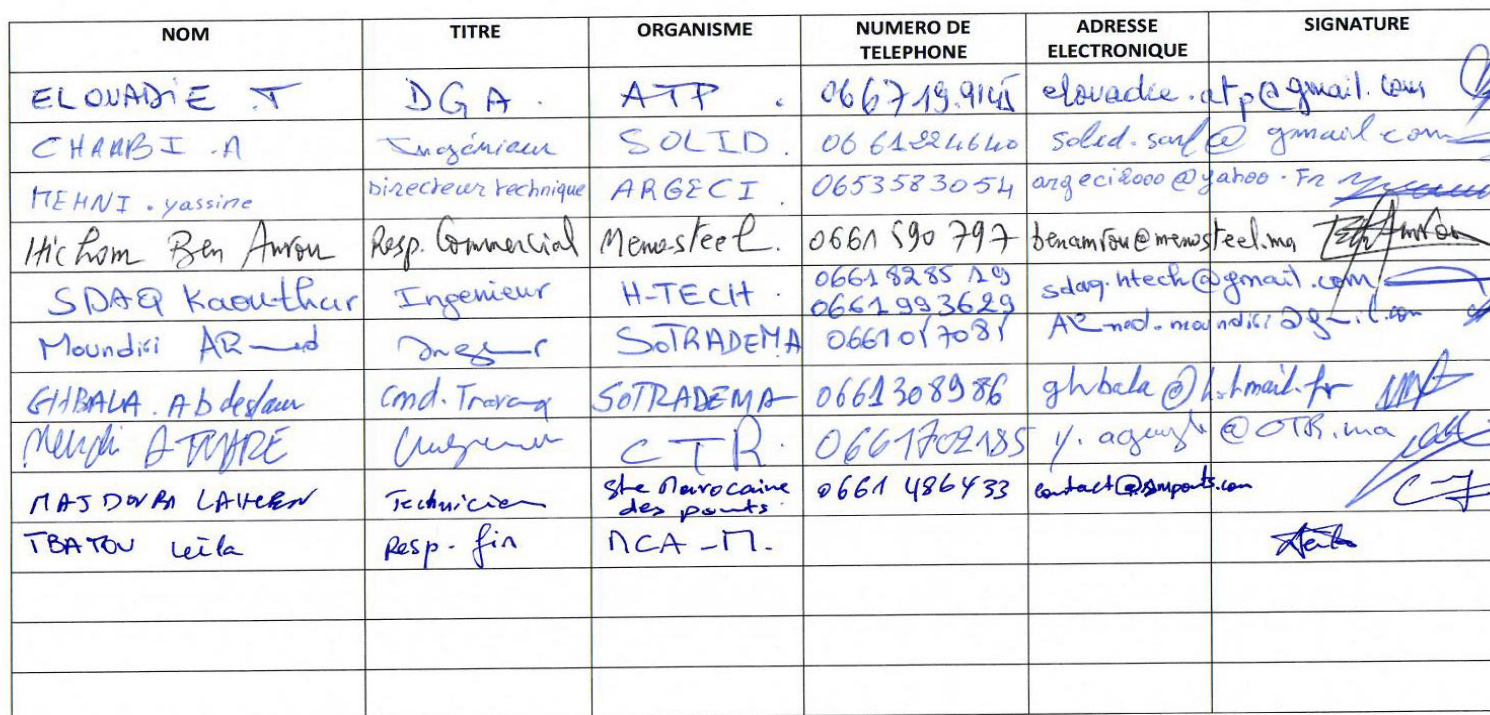 NOM TITRE ORGANISME NUMERO DE TELEPHONE ADRESSE ELECTRONIQUE SIGNATURE
ELOUADIE T DGA. ATP. 066719.9145 elouadie.atp@gmail.com
CHAABI .A Ingénieur SOLID. 0661224640 solid.sarl@gmail.com
MEHNI . yassine Directeur technique ARGECI 0653583054 argeci2000@yahoo.Fr
Hicham Ben Amrou Resp. Commercial Menosteel. 0661 590 797 benamrou@menosteel.ma
SDAQ Kaouthar Ingenieur H-TECH. 0661828519 0661993629 sdaq.htech@gmail.com
Moundisi SOTRADEMA
GHBALA . Abdeslam Cond. Travaux SOTRADEMA 0661308986 ghbala@hotmail.fr
Mehdi 0661702185
MAJDOUBA LAHCEN Technicien Ste Marocaine des ponts 0661 486433
TBATOU Leila Resp. fin MCA-M.